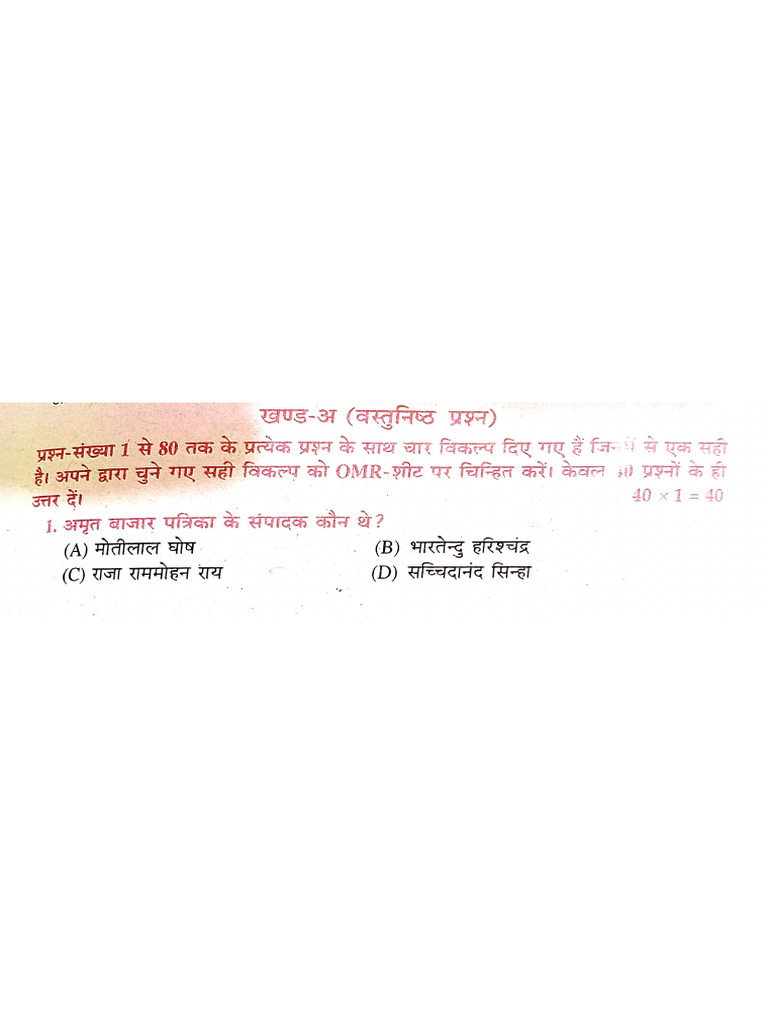 खण्ड-अ (वस्तुनिष्ठ प्रश्न)
प्रश्न-संख्या 1 से 80 तक के प्रत्येक प्रश्न के साथ चार विकल्प दिए गए हैं जिनमें से एक सही
है। अपने द्वारा चुने गए सही विकल्प को OMR-शीट पर चिन्हित करें। केवल प्रश्नों के ही
उत्तर दें। 40 × 1 = 40
1. अमृत बाजार पत्रिका के संपादक कौन थे ?
(A) मोतीलाल घोष (B) भारतेन्दु हरिश्चंद्र
(C) राजा राममोहन राय (D) सच्चिदानंद सिन्हा